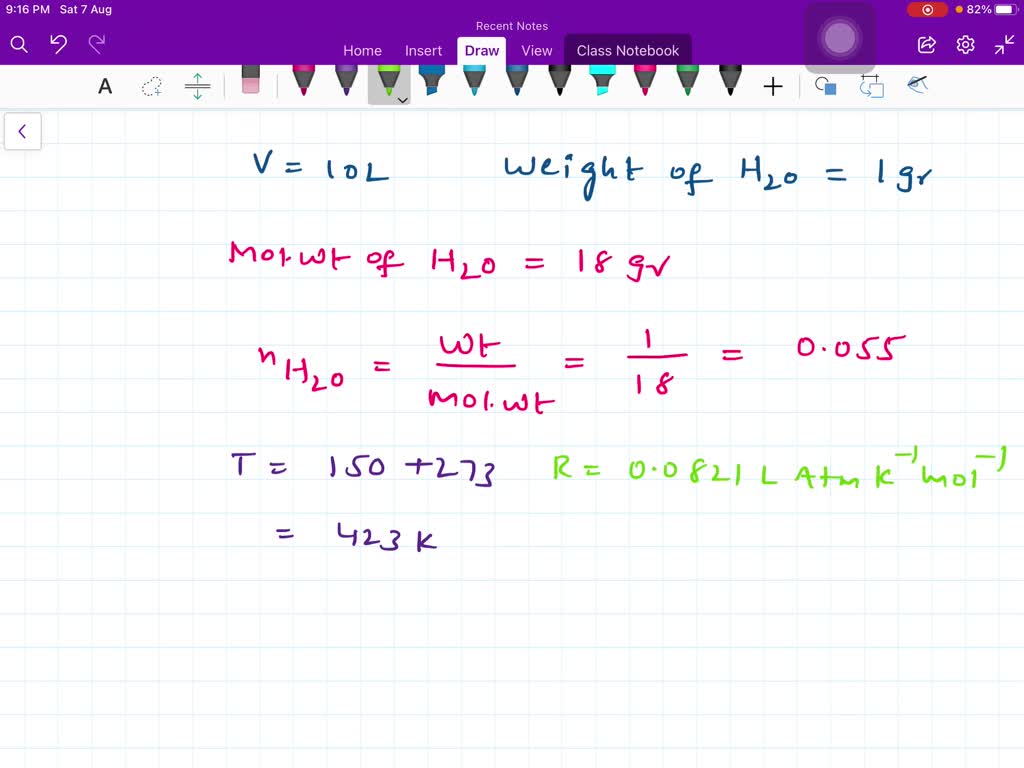 9:16 PM Sat 7 Aug
82%
Recent Notes
Home Insert Draw View Class Notebook
A
V = 10L Weight of H₂O = 1gr
Mol.wt of H₂O = 18 gr
nH₂O = wt/mol.wt = 1/18 = 0.055
T = 150 + 273 R = 0.0821 L Atm K⁻¹ mol⁻¹
= 423 K